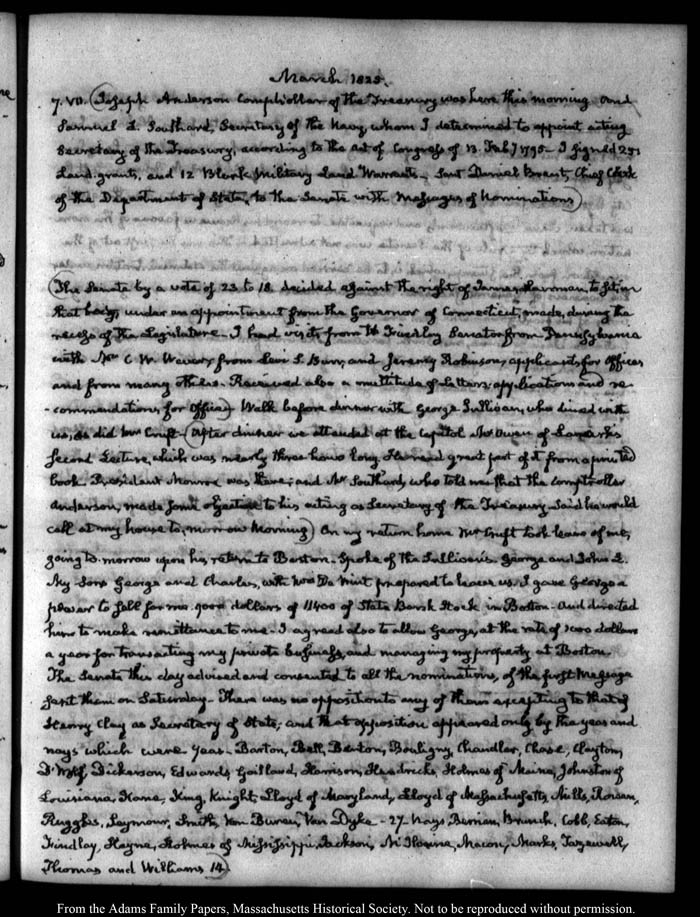 March 1825.
7. VII. (Joseph Anderson Comptroller of the Treasury was here this morning and
Samuel L. Southard, Secretary of the Navy whom I determined to appoint acting
Secretary of the Treasury, according to the Act of Congress of 13. Feby 1795— I signed 251
Land-grants, and 12 Blank Military Land Warrants— Sent Daniel Brent, Chief Clerk
of the Department of State, to the Senate with Messages of Nominations)
(The Senate by a vote of 23 to 18. decided against the right of James Lanman, to sit in
that body, under an appointment from the Governor of Connecticut, made, during the
recess of the Legislature. I had visits from W Findlay Senator from Pennsylvania
with Mr C. W. Wever, from Levi S. Burr, and Jeremy Robinson, applicants for Offices
and from many others. Received also a multitude of Letters, applications and re-
-commendations for Office) Walk before dinner with George Sullivan, who dined with
us, as did Mr Cruft— (After dinner we attended at the Capitol Mr Owen of Lanark's
second Lecture, which was nearly three hours long. He read great part of it from a printed
book. President Monroe was there; and Mr Southard, who told me that the Comptroller
Anderson, made some objection to his acting as Secretary of the Treasury. Said he would
call at my house to-morrow Morning) On my return home Mr Cruft took leave of me,
going to-morrow upon his return to Boston. Spoke of the Sullivans. George and John L.
My Sons George and Charles, with Mrs De Wint prepared to leave us. I gave George a
power to sell for me 9000 dollars of 11400 of State Bank Stock in Boston— And directed
him to make remittances to me— I agreed also to allow George, at the rate of 1000 dollars
a year for transacting my private business, and managing my property at Boston.
The Senate this day advised and consented to all the nominations, of the first Message
sent them on Saturday— There was no opposition to any of them excepting to that of
Henry Clay as Secretary of State; and that opposition appeared only by the yeas and
nays which were yeas— Barton, Bell, Benton, Bouligny, Chandler, Chase, Clayton,
D'Wolf, Dickerson, Edwards, Gaillard, Harrison, Hendricks, Holmes of Maine, Johnston of
Louisiana, Kane, King, Knight, Lloyd of Maryland, Lloyd of Massachusetts, Mills, Rowan,
Ruggles, Seymour, Smith, Van Buren, Van Dyke— 27. Nays, Berrian, Branch, Cobb, Eaton,
Findlay, Hayne, Holmes of Mississippi, Jackson, McIlvaine, Macon, Marks, Tazewell,
Thomas and Williams 14)
From the Adams Family Papers, Massachusetts Historical Society. Not to be reproduced without permission.